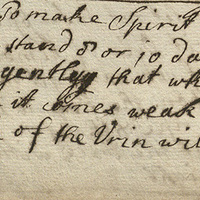 To make Spirit
stand 8 or 10 da
gently that wh
it comes weak
of the Urin wil